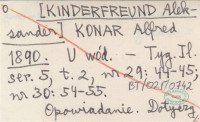 [KINDERFREUND Alek-
sander] KONAR Alfred
1890. U wód. - Tyg. Il.
ser. 5, t. 2, nr 29: 44-45;
nr 30: 54-55.
BT/02/0742
Opowiadanie. Dotyczy